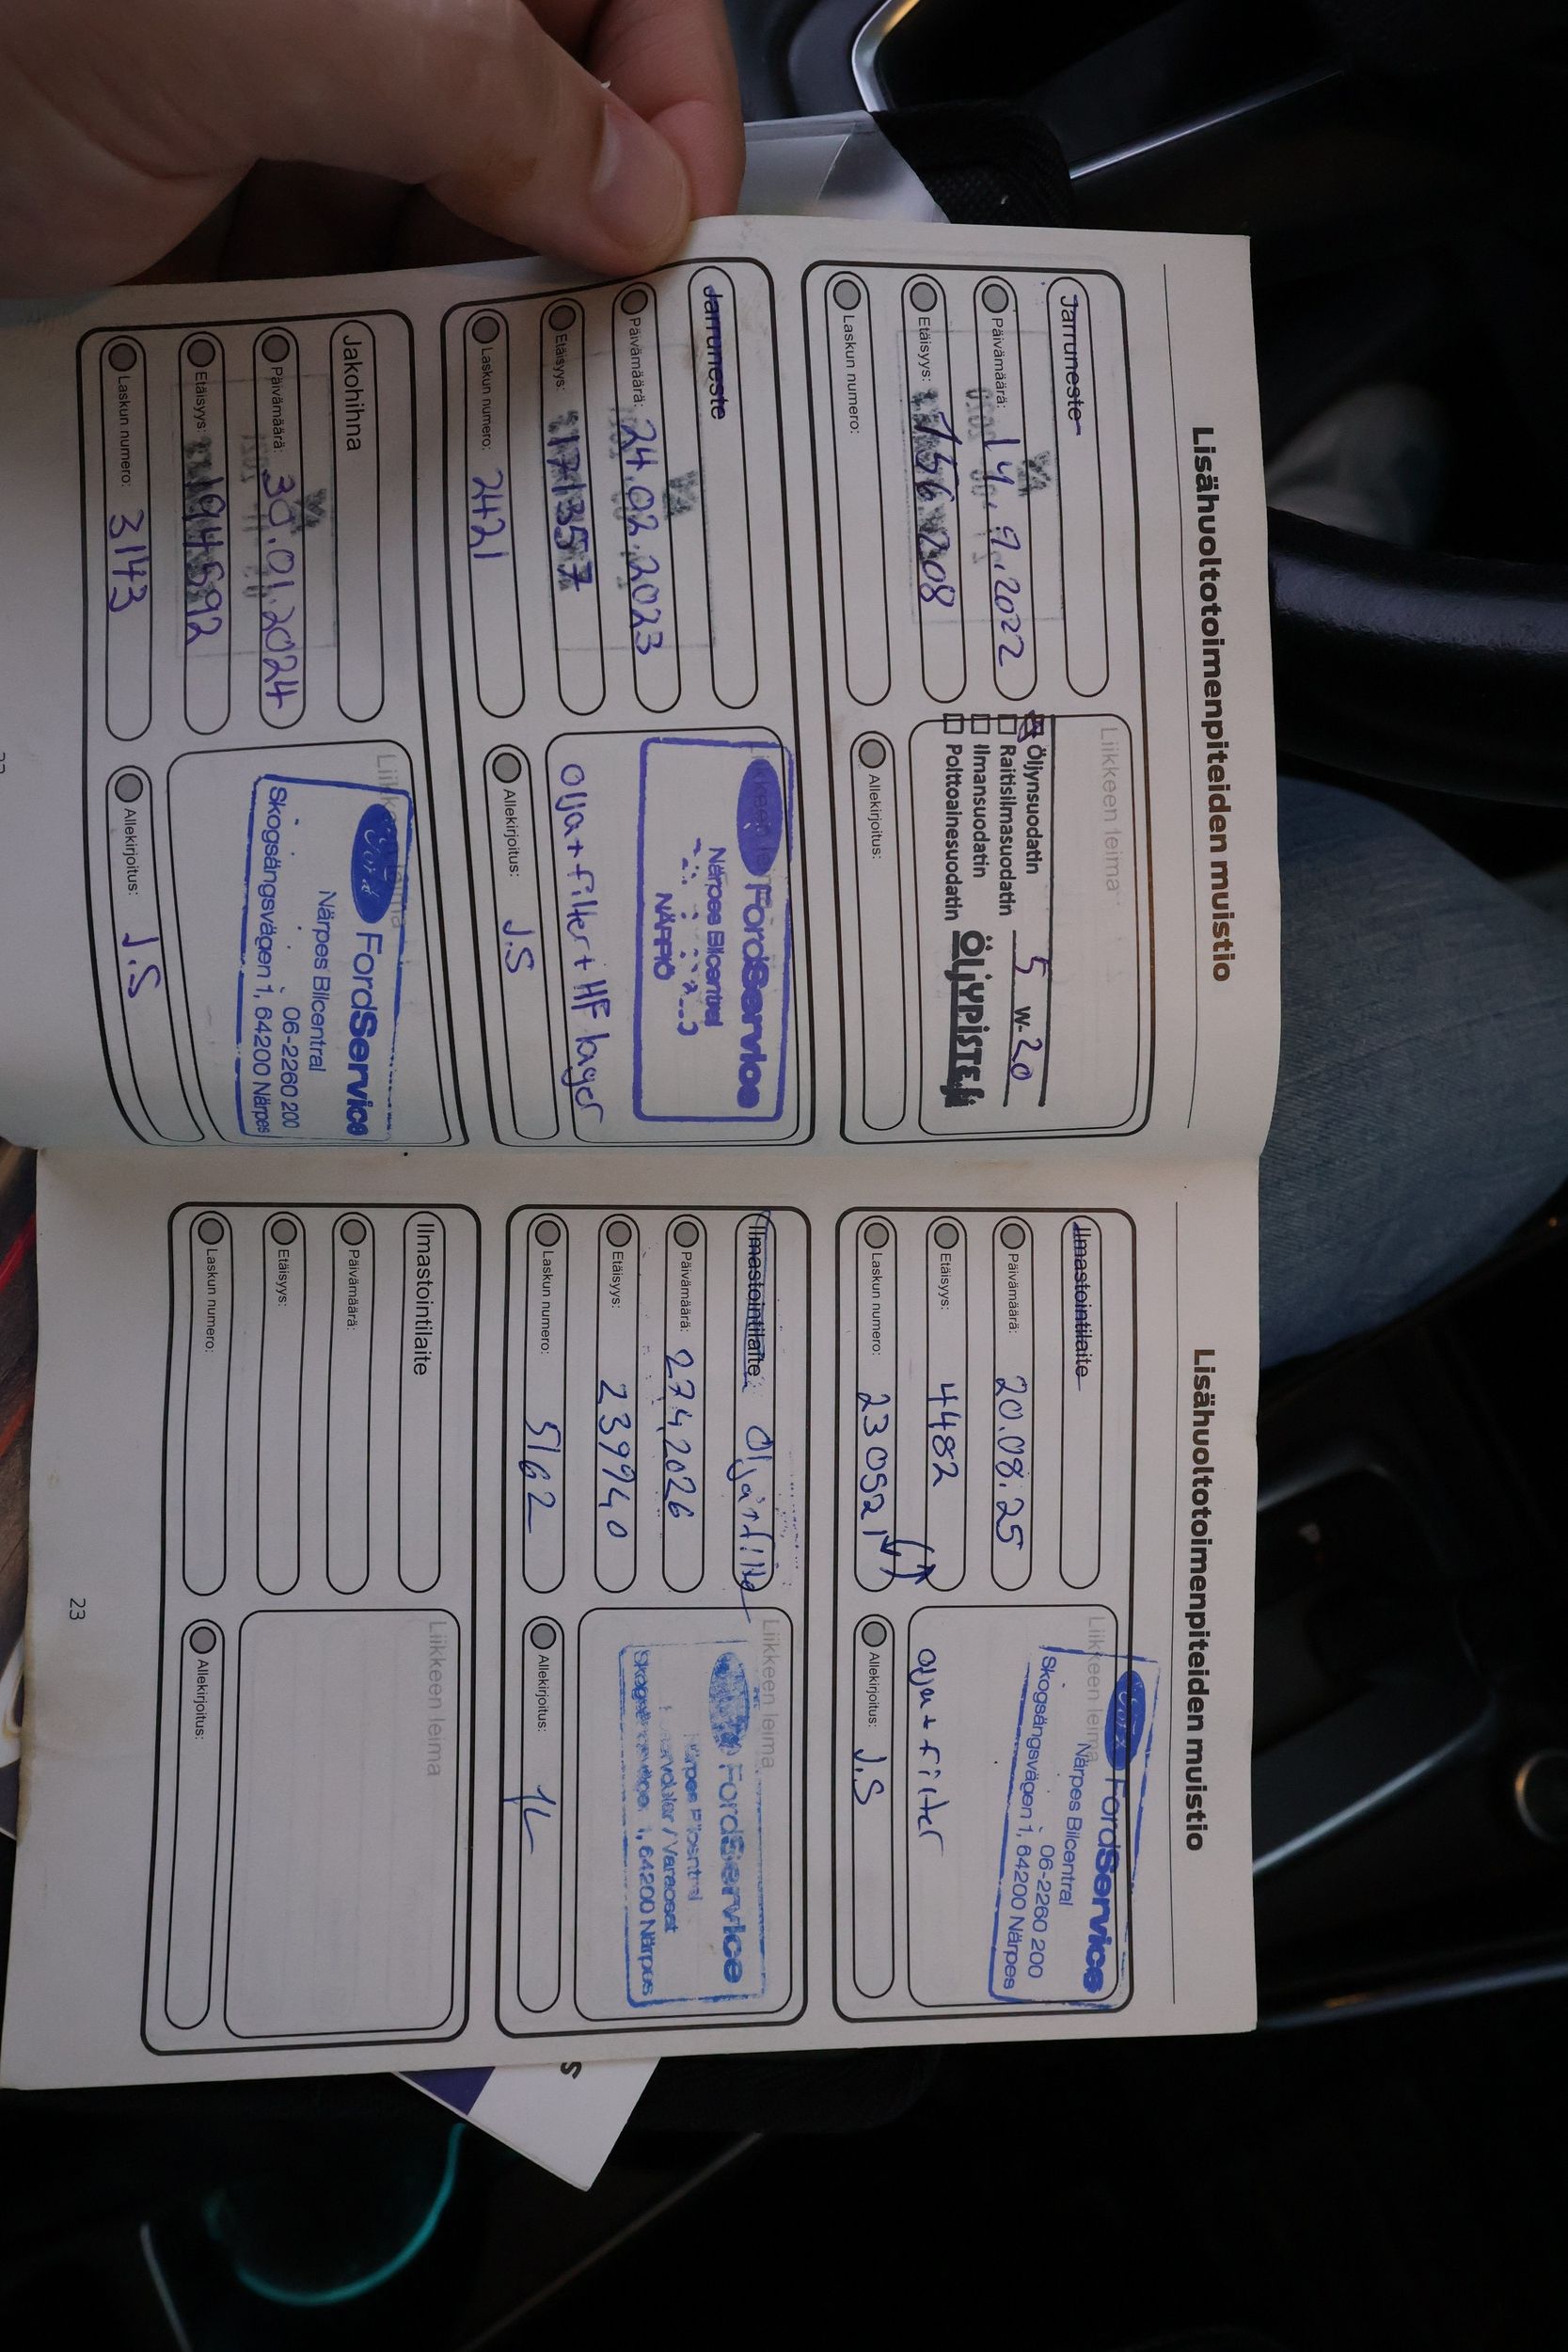 Lisähuoltotoimenpiteiden muistio
Jarruneste
Päivämäärä: 14.9.2022
Etäisyys: 156 208
Laskun numero:
Liikkeen leima
Öljynsuodatin
Raitisilmasuodatin
Ilmansuodatin
Polttoainesuodatin
5 W-20
ÖLJYPISTE
Allekirjoitus:
Jarruneste
Päivämäärä: 24.02.2023
Etäisyys: 171357
Laskun numero: 2421
FordService
Närpes Bilcentral
NÄRPIÖ
Olja + filter + HF lager
Allekirjoitus: J.S
Jakohihna
Päivämäärä: 30.01.2024
Etäisyys: 194592
Laskun numero: 3143
Liikkeen leima
Ford FordService
Närpes Bilcentral
06-2260 200
Skogsängsvägen 1, 64200 Närpes
Allekirjoitus: J.S
Lisähuoltotoimenpiteiden muistio
Ilmastointilaite
Päivämäärä: 20.08.25
Etäisyys: 4482
Laskun numero: 230521
Liikkeen leima
Ford FordService
Närpes Bilcentral
06-2260 200
Skogsängsvägen 1, 64200 Närpes
olja + filter
Allekirjoitus: J.S
Ilmastointilaite
Päivämäärä: 27.4.2026
Etäisyys: 239940
Laskun numero: 5162
Liikkeen leima
FordService
/ Varaosat
1, 64200 Närpes
Allekirjoitus:
Ilmastointilaite
Päivämäärä:
Etäisyys:
Laskun numero:
Liikkeen leima
Allekirjoitus:
23